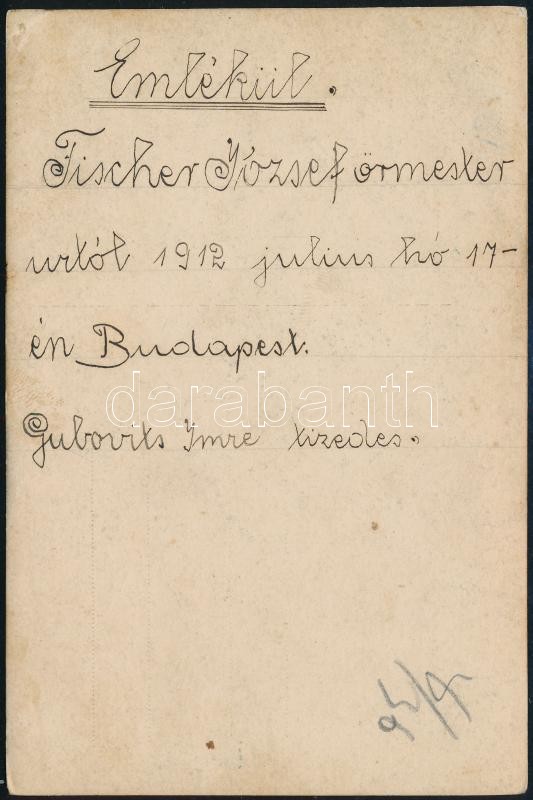 Emlékül.
Fischer József őrmester
urtól 1912 julius hó 17-
én Budapest.
darabanth
Gubovits Imre tizedes.